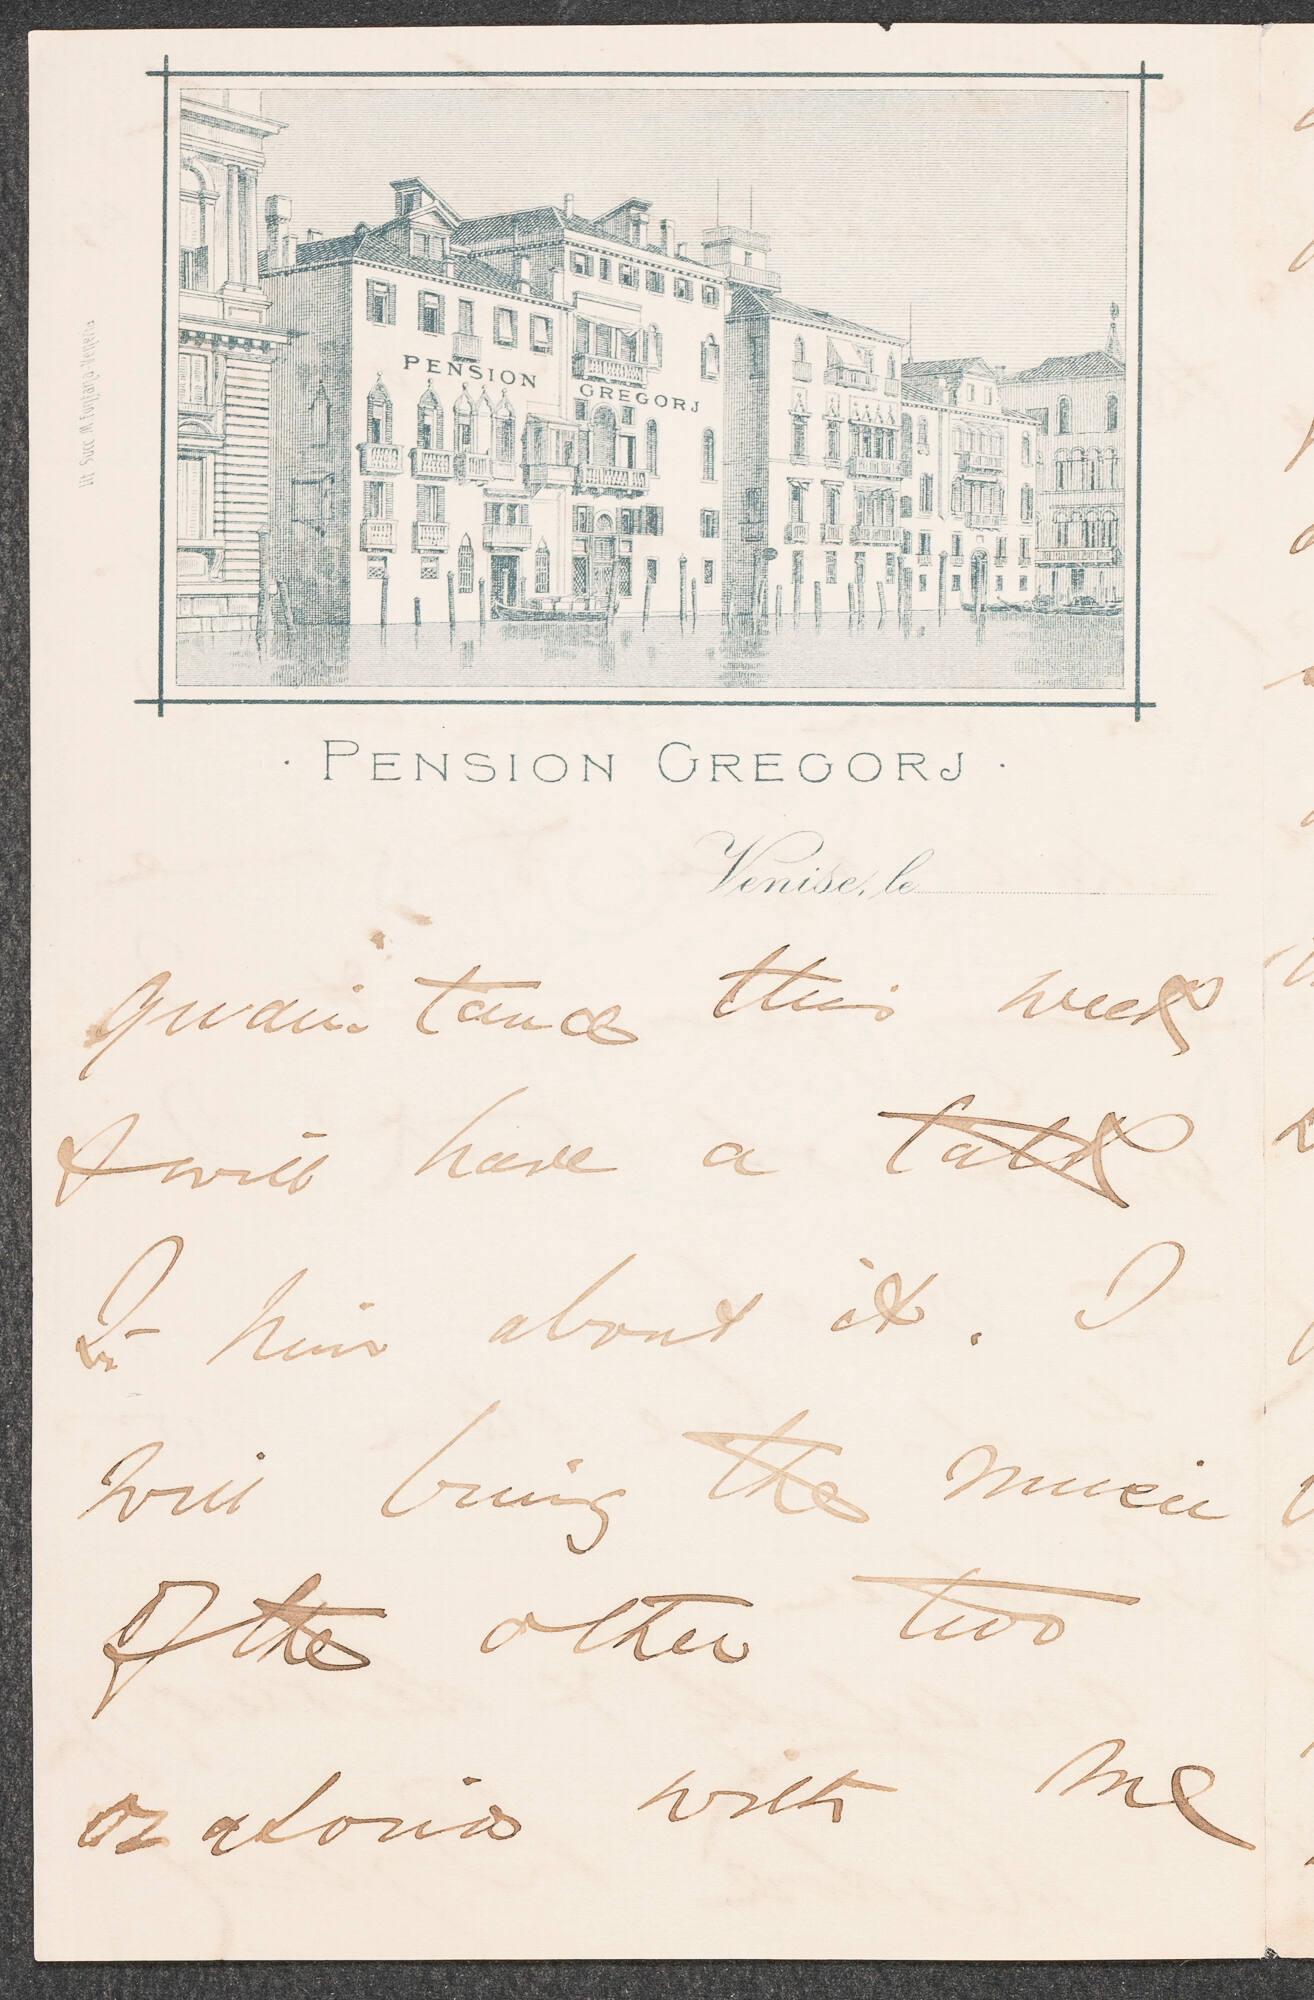 Lit. Succ. M. Fontana Venezia
PENSION GREGORJ
· PENSION GREGORJ ·
Venise, le
quaintance this week
& will have a talk
him about it. I
will bring the music
of the other two
oratorios with me